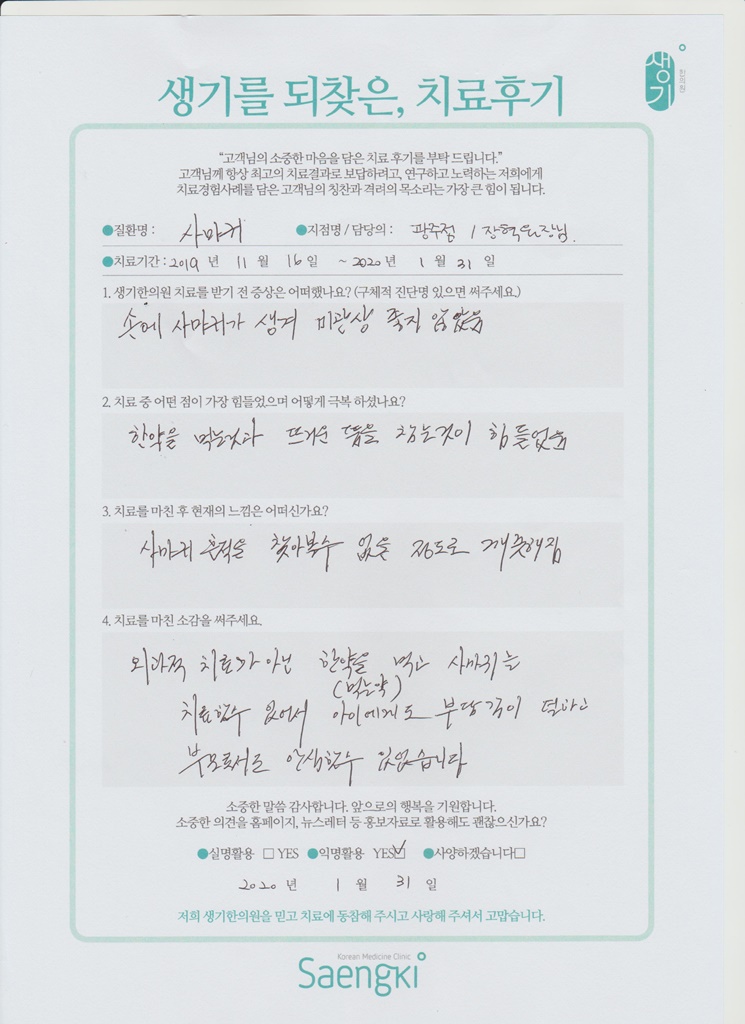 생기를 되찾은, 치료후기
생기
한의원
“고객님의 소중한 마음을 담은 치료 후기를 부탁 드립니다.”
고객님께 항상 최고의 치료결과로 보답하려고, 연구하고 노력하는 저희에게
치료경험사례를 담은 고객님의 칭찬과 격려의 목소리는 가장 큰 힘이 됩니다.
●질환명 : 사마귀 ●지점명 / 담당의 : 광주점 / 장혁 원장님.
●치료기간 : 2019 년 11 월 16 일 ~ 2020 년 1 월 31 일
1. 생기한의원 치료를 받기 전 증상은 어떠했나요? (구체적 진단명 있으면 써주세요.)
손에 사마귀가 생겨 미관상 좋지 않았음
2. 치료 중 어떤 점이 가장 힘들었으며 어떻게 극복 하셨나요?
한약을 먹는것과 뜨거운 뜸을 참는것이 힘들었음
3. 치료를 마친 후 현재의 느낌은 어떠신가요?
사마귀 흔적을 찾아볼수 없을 정도로 깨끗해짐
4. 치료를 마친 소감을 써주세요.
외과적 치료가 아닌 한약을 먹고 사마귀를
(먹는약)
치료할수 있어서 아이에게도 부담감이 덜하고
부모로서도 안심할수 있었습니다
소중한 말씀 감사합니다. 앞으로의 행복을 기원합니다.
소중한 의견을 홈페이지, 뉴스레터 등 홍보자료로 활용해도 괜찮으신가요?
●실명활용 □ YES ●익명활용 YES☑ ●사양하겠습니다□
2020 년 1 월 31 일
저희 생기한의원을 믿고 치료에 동참해 주시고 사랑해 주셔서 고맙습니다.
Korean Medicine Clinic
Saengki